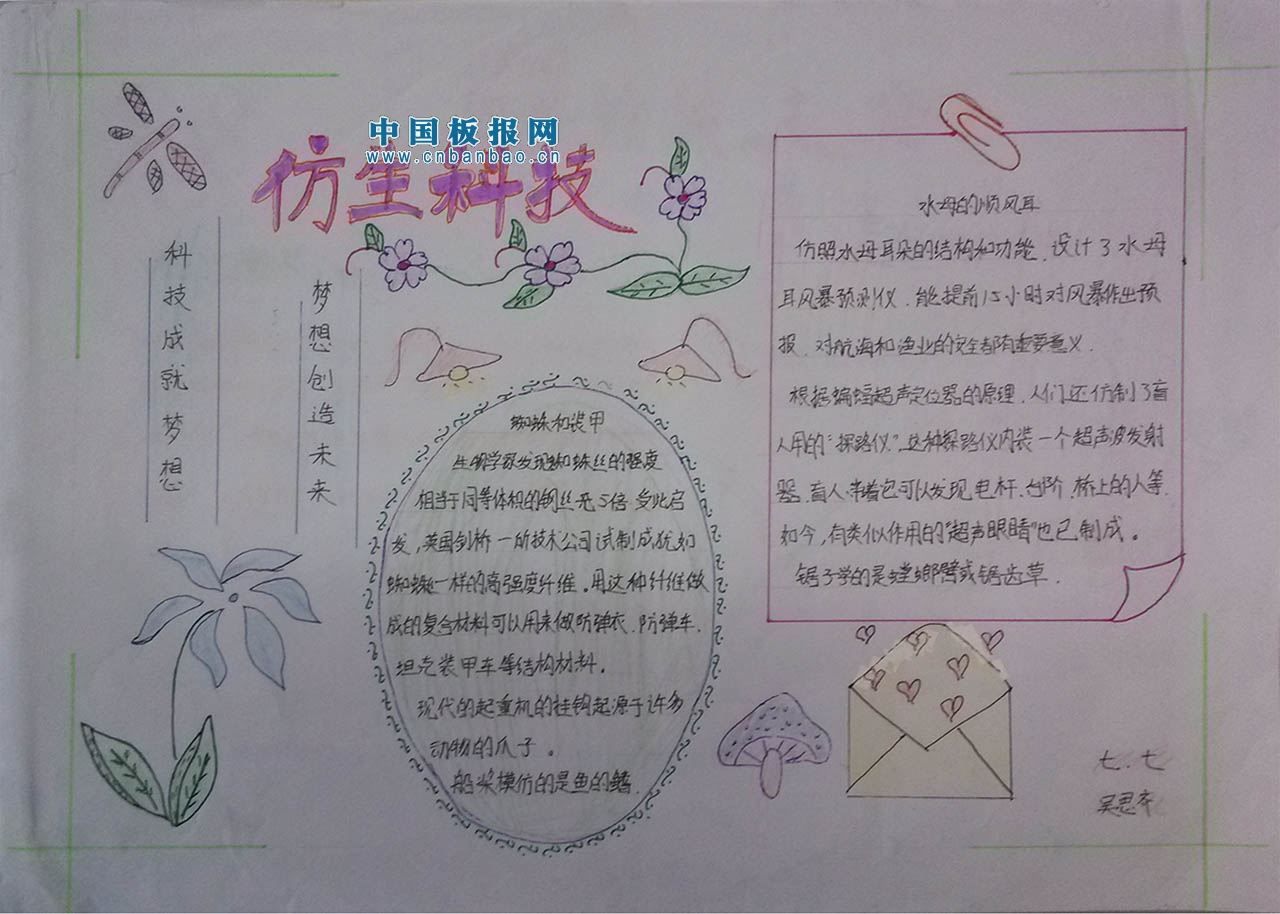 中国板报网
www.cnbanbao.cn
仿生科技
科技成就梦想
梦想创造未来
蜘蛛和装甲
生物学家发现蜘蛛丝的强度
相当于同等体积的钢丝的5倍.受此启
发，英国剑桥一所技术公司试制成犹如
蜘蛛丝一样的高强度纤维。用这种纤维做
成的复合材料可以用来做防弹衣.防弹车.
坦克装甲车等结构材料。
现代的起重机的挂钩起源于许多
动物的爪子。
船桨模仿的是鱼的鳍.
水母的顺风耳
仿照水母耳朵的结构和功能.设计了水母
耳风暴预测仪.能提前15小时对风暴作出预
报.对航海和渔业的安全都有重要意义.
根据蝙蝠超声定位器的原理.人们还仿制了盲
人用的“探路仪”.这种探路仪内装一个超声波发射
器.盲人带着它可以发现电杆.台阶.桥上的人等.
如今,有类似作用的“超声眼睛”也已制成。
锯子学的是螳螂臂或锯齿草.
七.七